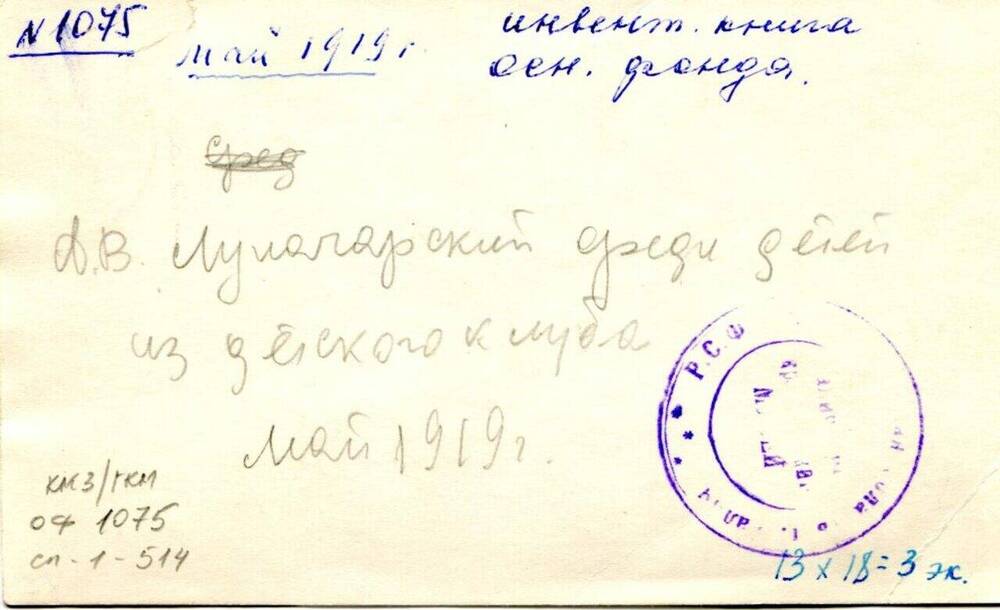 N 1075
май 1919 г.
инвент. книга
осн. фонда.
сред
А.В. Луначарский среди детей
из детского клуба
май 1919 г.
КМЗ/ГКМ
ОФ 1075
сп-1-514
Р.С.Ф
13 х 18 = 3 эк.